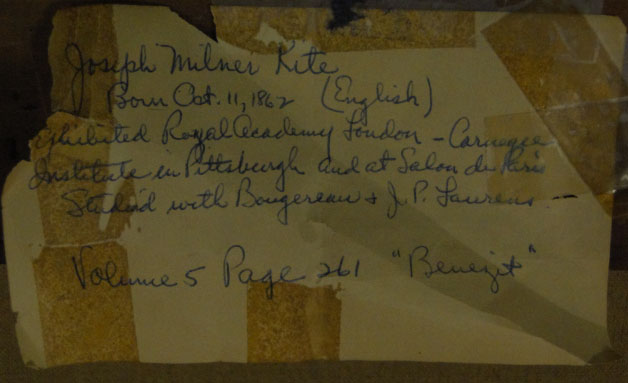 Joseph Milner Kite
Born Oct. 11, 1862 (English)
Exhibited Royal Academy London - Carnegie
Institute in Pittsburgh and at Salon du Paris
Studied with Bougereau + J. P. Laurens -
Volume 5 Page 261 "Benezit"